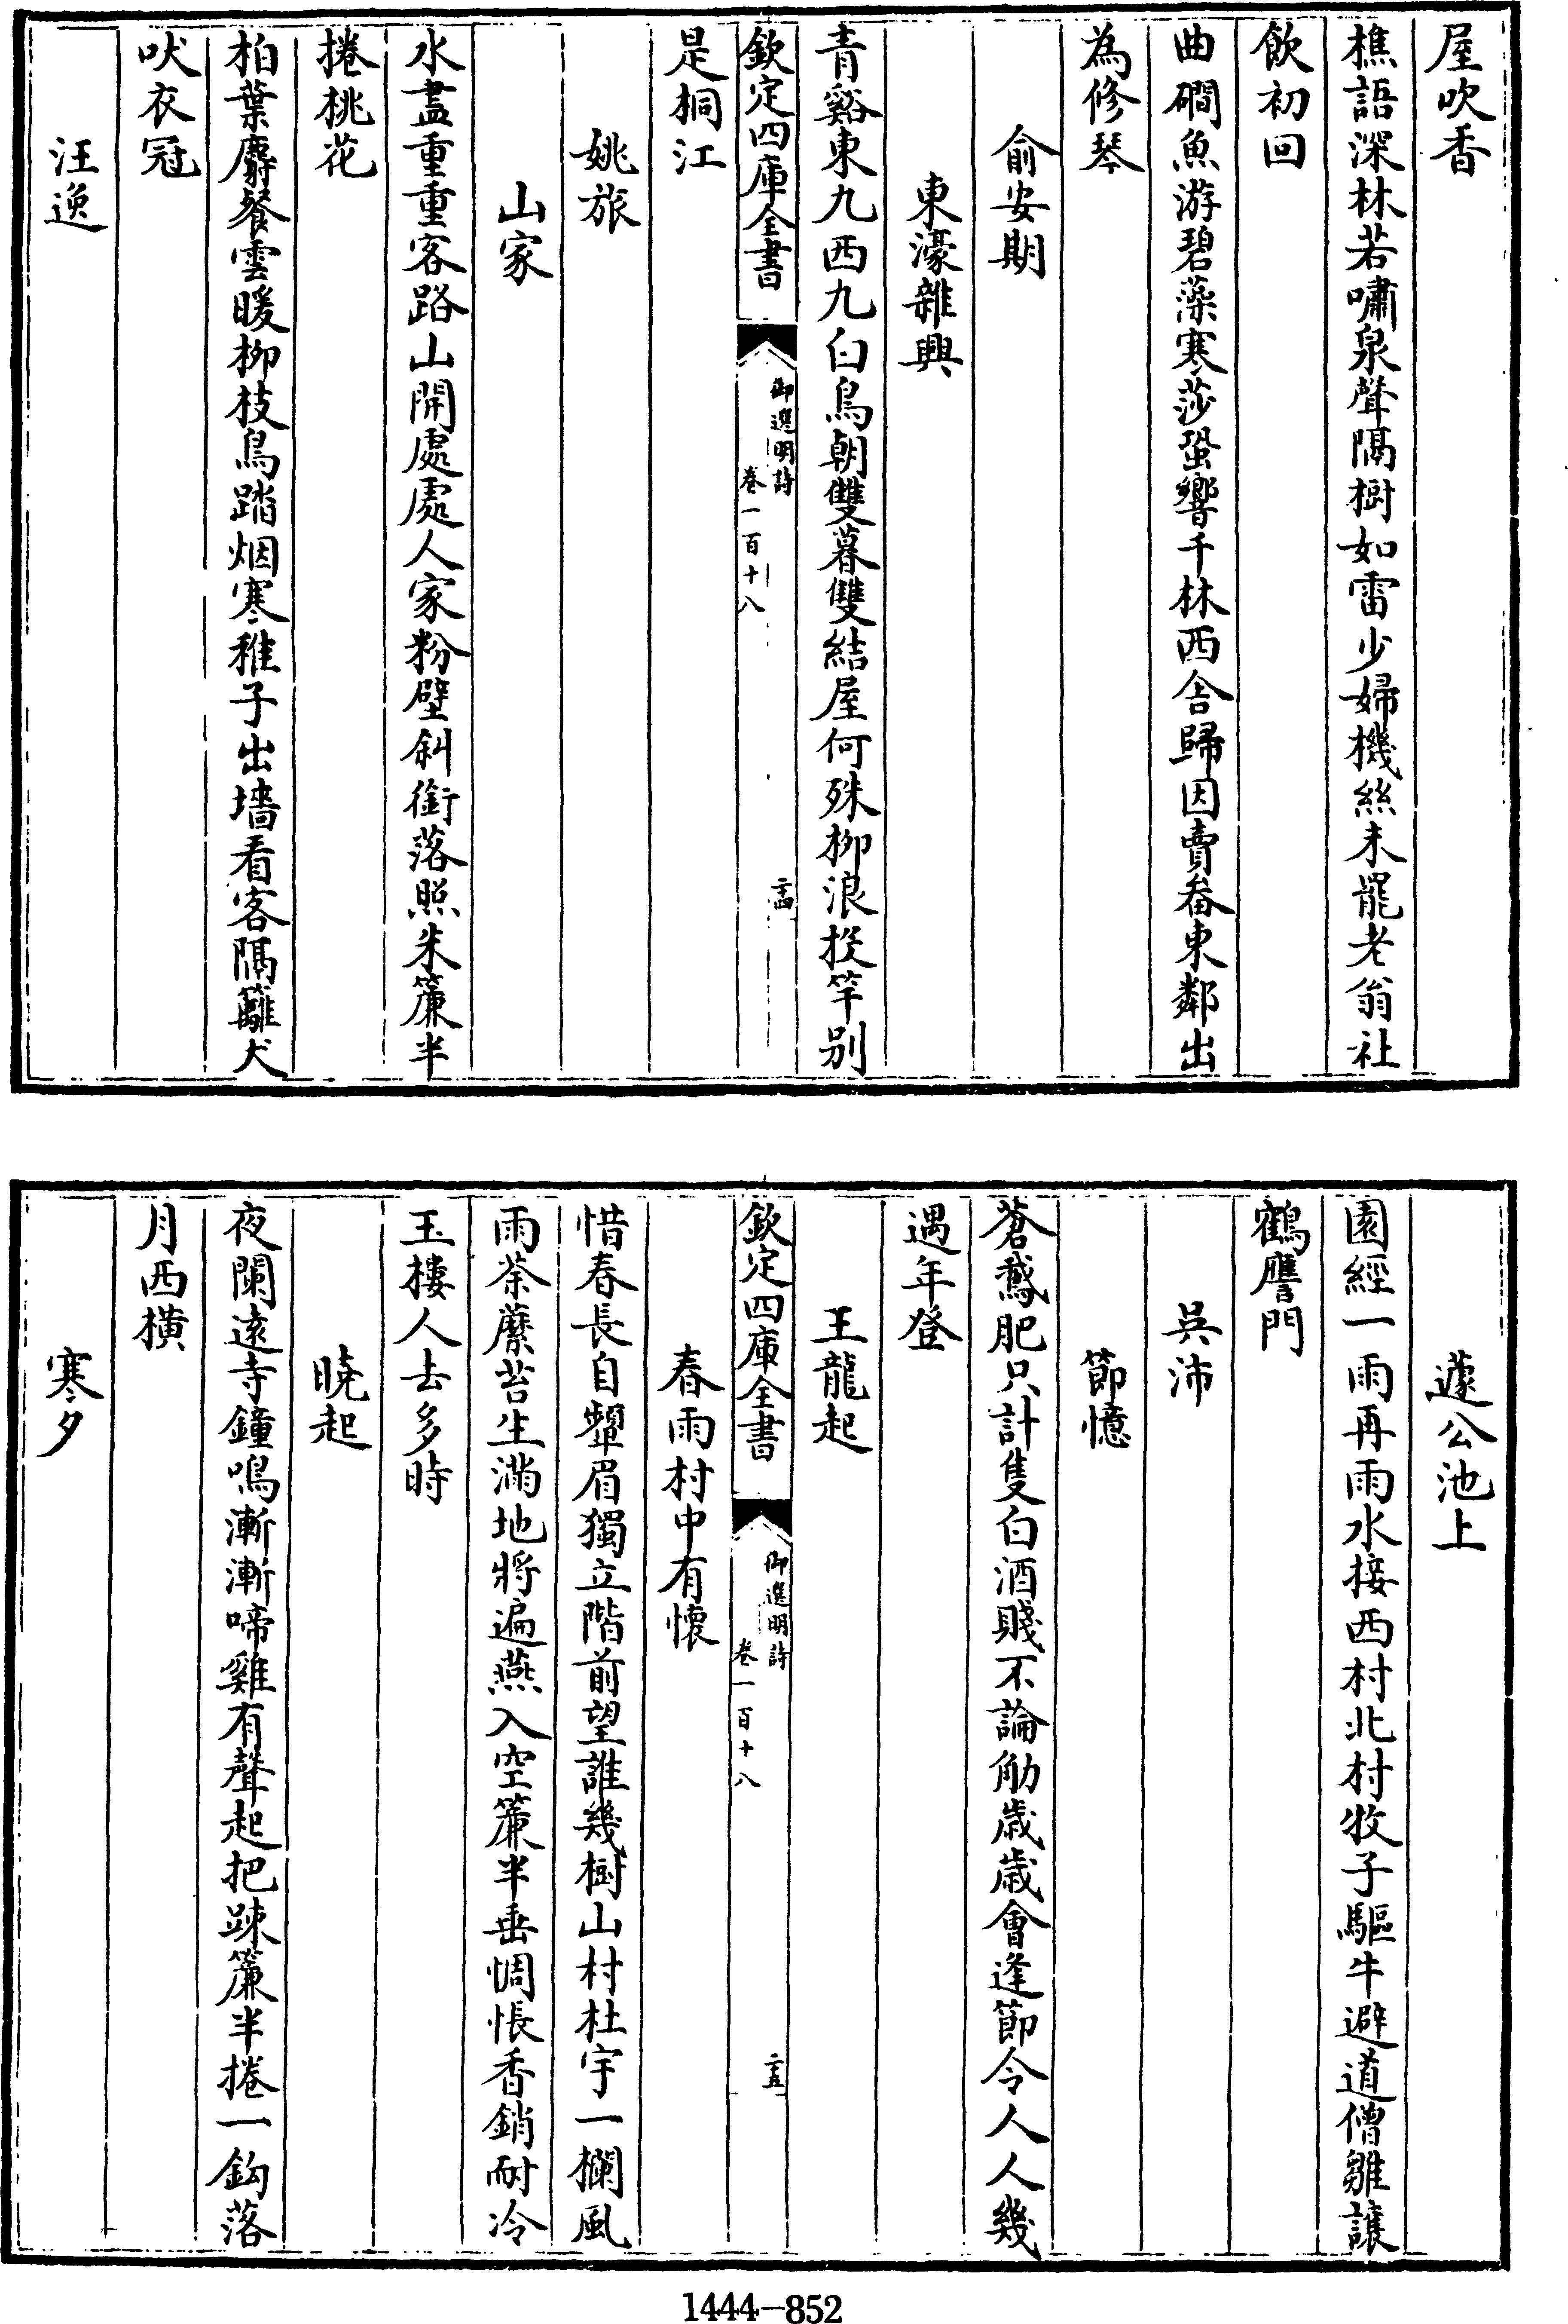 屋吹香
樵語深林若嘯泉聲隔樹如雷少婦機絲未罷老翁社
飲初回
曲磵魚游碧藻寒莎蛩響千林西舍歸因賣畚東鄰出
為修琴
俞安期
東濠雜興
青谿東九西九白鳥朝雙暮雙結屋何殊柳浪投竿别
欽定四庫全書
御選明詩
卷一百十八
二十四
是桐江
姚旅
山家
水盡重重客路山開處處人家粉壁斜銜落照朱簾半
捲桃花
柏葉麝餐雲暖柳枝鳥踏烟寒稚子出墻看客隔籬犬
吠衣冠
汪逸
蘧公池上
園經一雨再雨水接西村北村牧子驅牛避道僧雛讓
鶴譍門
吳沛
節憶
蒼鵞肥只計隻白酒賤不論觔歲歲會逢節令人人幾
遇年登
王龍起
欽定四庫全書
御選明詩
卷一百十八
二十五
春雨村中有懷
惜春長自顰眉獨立階前望誰幾樹山村杜宇一欄風
雨荼蘼苔生滿地將遍燕入空簾半垂惆悵香銷耐冷
玉樓人去多時
曉起
夜闌遠寺鐘鳴漸漸啼雞有聲起把疎簾半捲一鈎落
月西橫
寒夕
1444-852